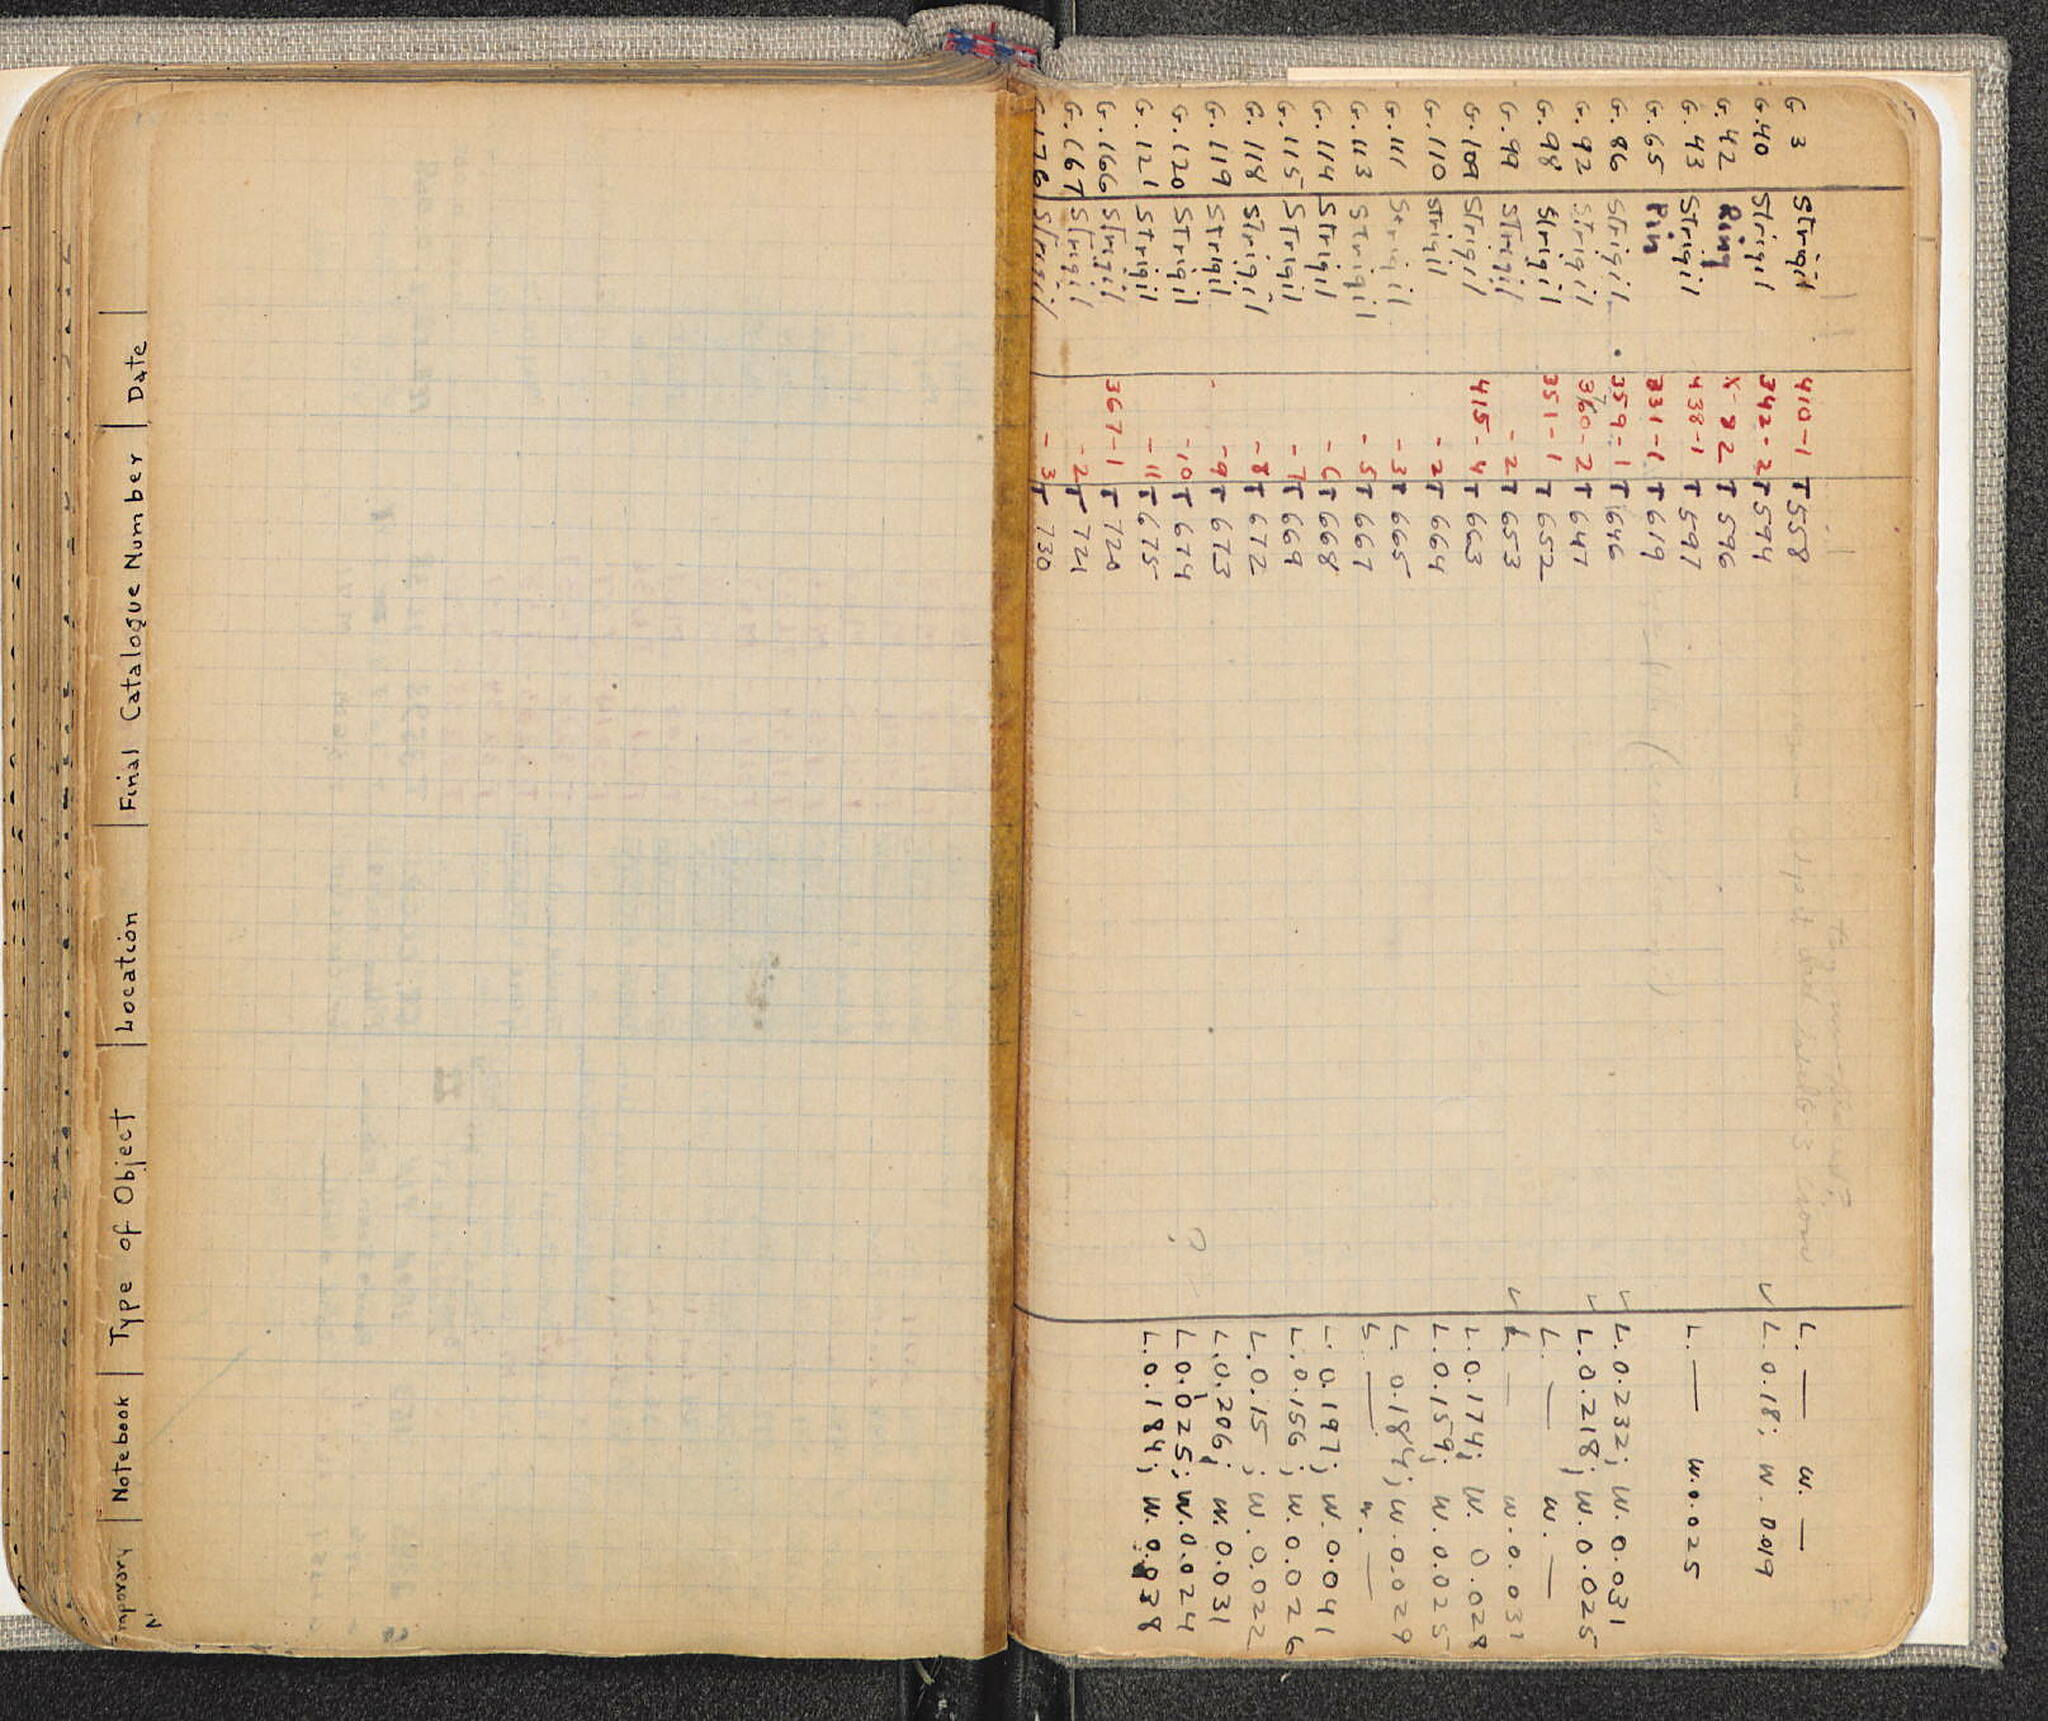 G. 3 Strigil 410-1 T 558 L. — W. —
G. 40 Strigil 342-2 T 594 L. 0.18; W. 0.019
G. 42 Ring X-82 T 596
G. 43 Strigil 438-1 T 597 L. — W. 0.025
G. 65 Pin 331-1 T 619
G. 86 Strigil 359-1 T 646 L. 0.232; W. 0.031
G. 92 Strigil 360-2 T 647 L. 0.218; W. 0.025
G. 98 Strigil 351-1 T 652 L. — W. —
G. 99 Strigil -2 T 653 L. — W. 0.031
G. 109 Strigil 415-4 T 663 L. 0.174; W. 0.028
G. 110 Strigil -2 T 664 L. 0.159; W. 0.025
G. 111 Strigil -3 T 665 L. 0.184; W. 0.029
G. 113 Strigil -5 T 667 L. — W. —
G. 114 Strigil -6 T 668 L. 0.197; W. 0.041
G. 115 Strigil -7 T 669 L. 0.156; W. 0.026
G. 118 Strigil -8 T 672 L. 0.15; W. 0.022
G. 119 Strigil -9 T 673 L. 0.206; W. 0.031
G. 120 Strigil -10 T 674 L. 0.025; W. 0.024
G. 121 Strigil -11 T 675 L. 0.184; W. 0.038
G. 166 Strigil 367-1 T 720
G. 167 Strigil -2 T 721
G. 176 Strigil -3 T 730
Notebook Type of Object Location Final Catalogue Number Date